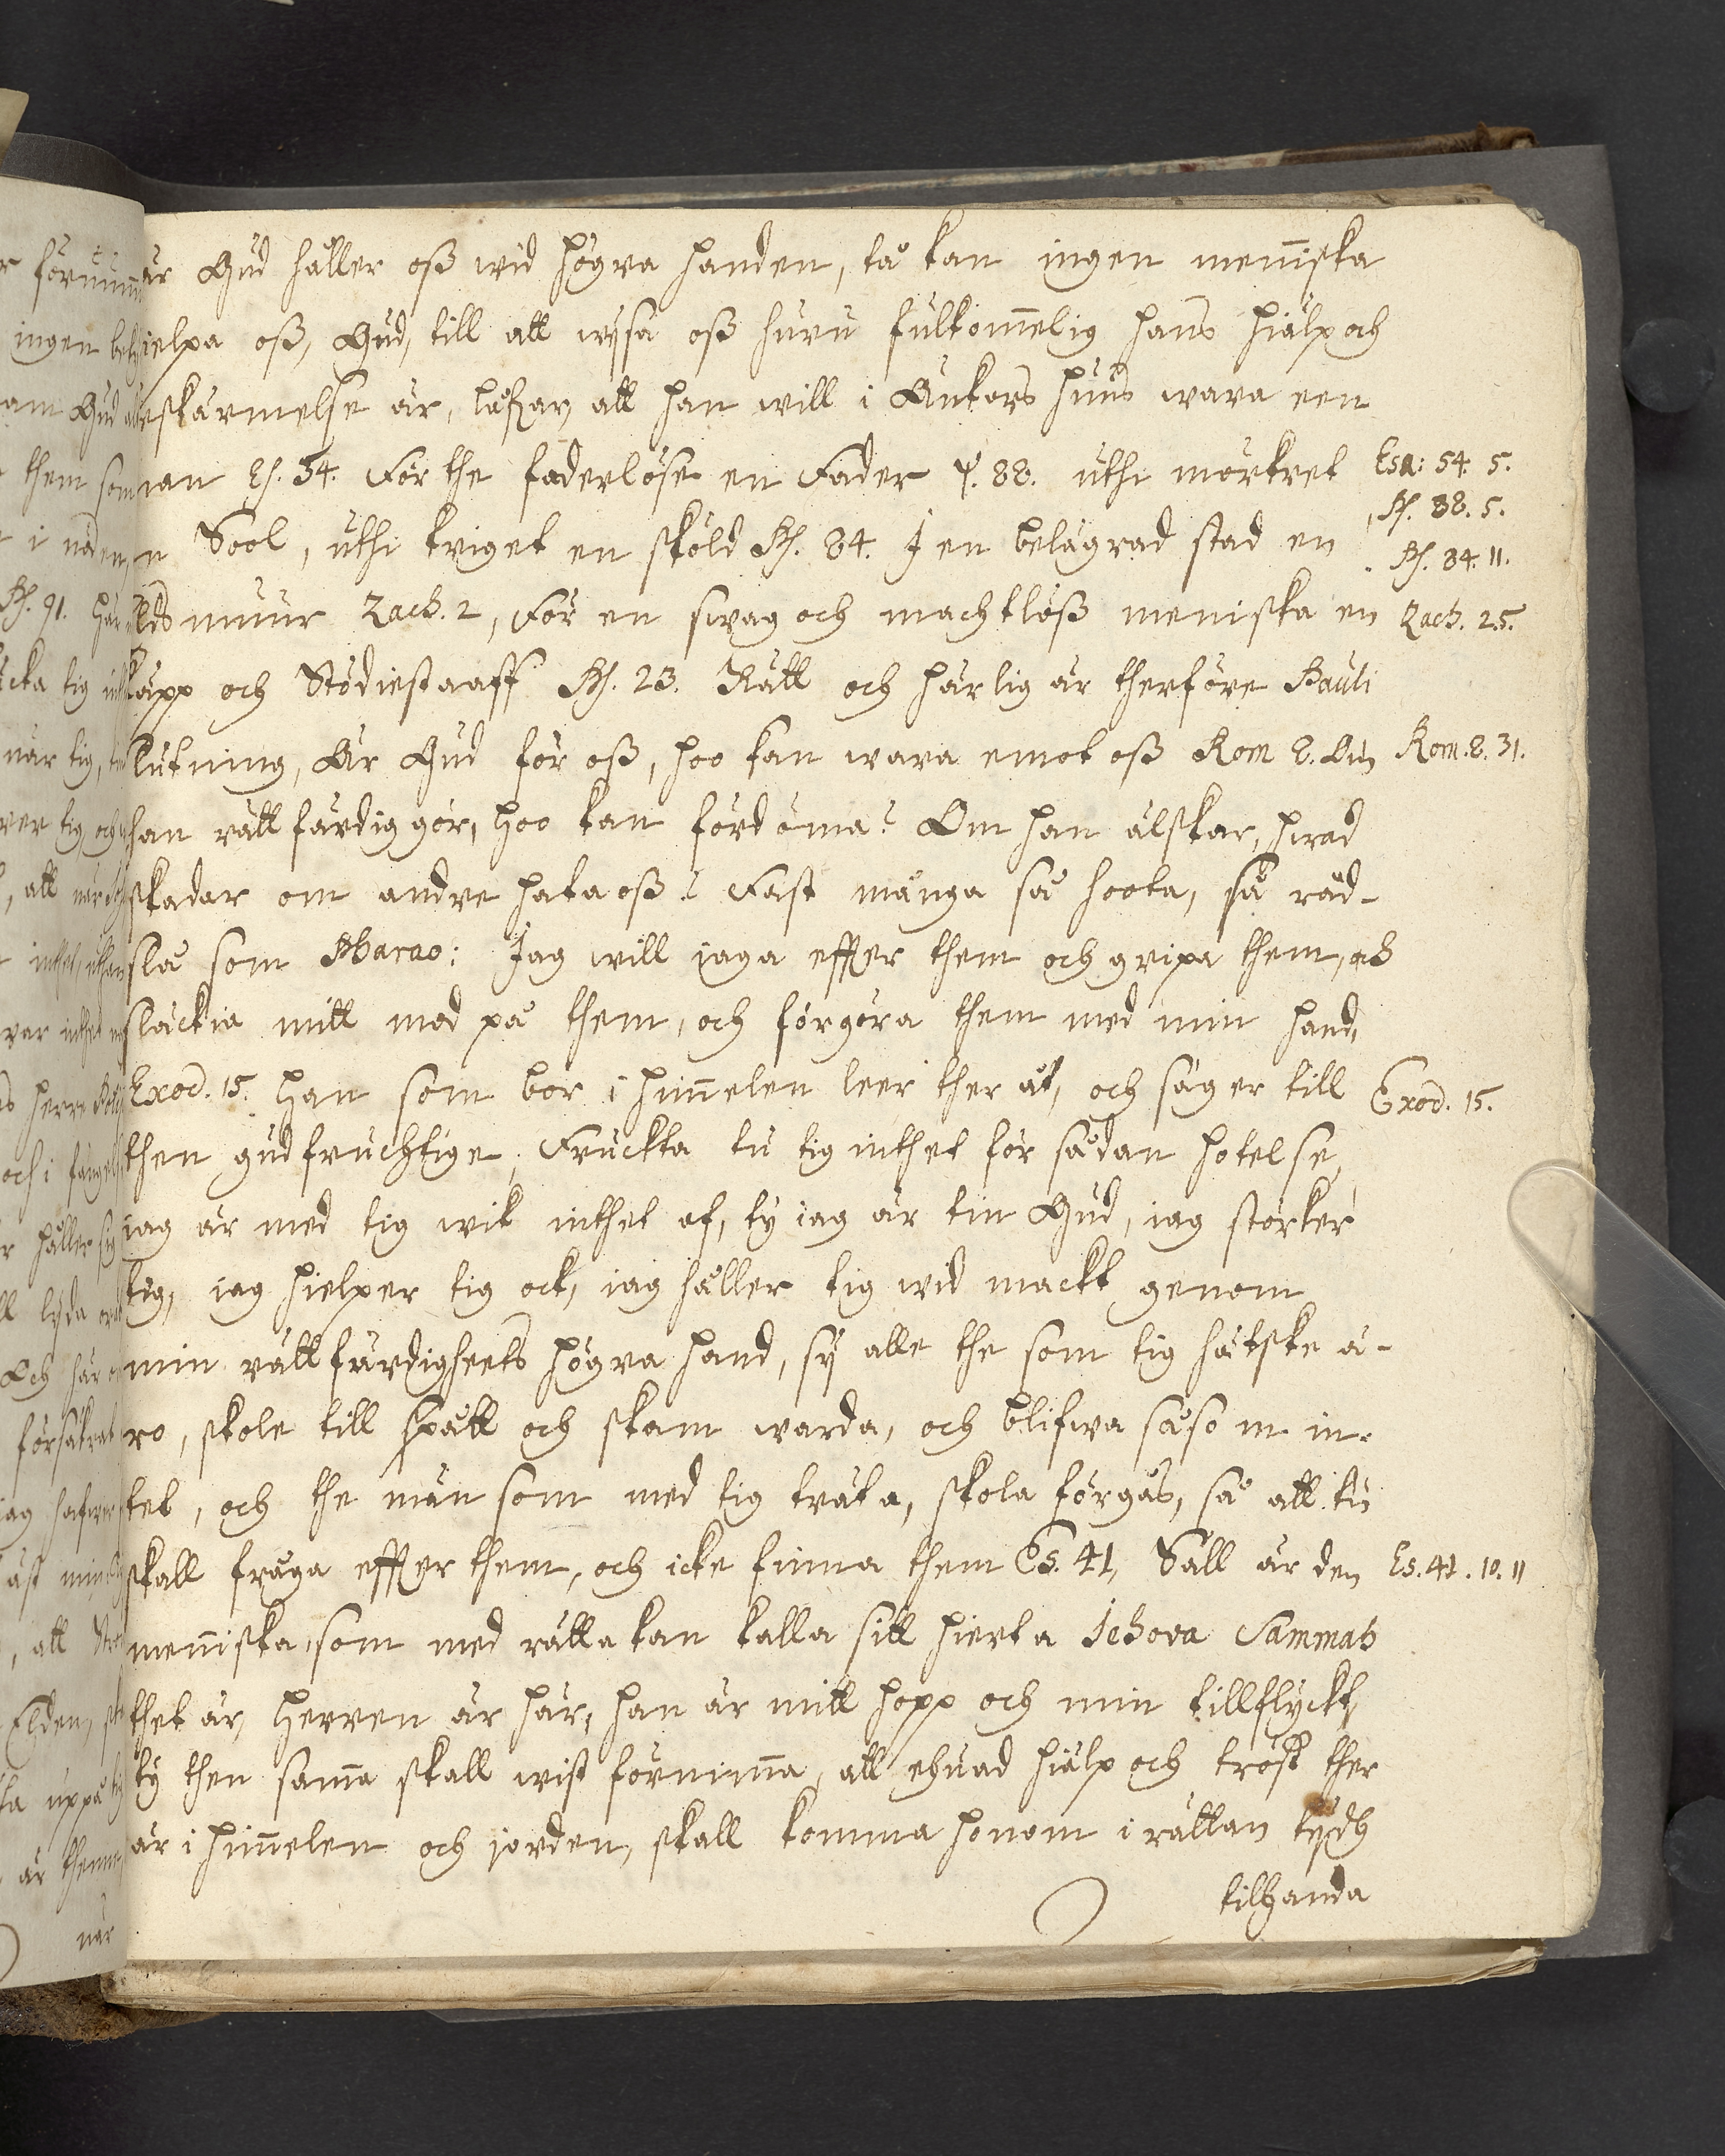 är Gud håller oß wid högra handen, tå kan ingen menniska
ielpa oß, Gud, till att wÿsa oß huru fulkommelig hans hiälp och
eskärmelse är, låfvar, att han will i Änkors huus wara een
man Es. 54. För the faderlöse en Fader ps. 88. uthi mörkret Esa: 54. 5.
Ps. 88. 5.
n Sool, uthi kriget en sköld Ps. 84. I en belägrad stad en Ps. 84. 11.
elds muur Zach. 2, För en swag och machtlöß meniska en Zach. 2.5.
käpp och Stödiestaaff Ps. 23. Rätt och härlig är therföre Pauli
slutning, Är Gud för oß, hoo kan wara emot oß Rom 8. Om Rom. 8. 31.
han rättfärdig gör, hoo kan fördöma? Om han älskar, hwad
skadar om andre hata oß? Fast många så hoota, så råd-
slå som Pharao: Jag will jaga effter them och gripa them, och
släckia mitt mod på them, och förgöra them med min hand,
Exod. 15. Han som bor i himmelen leer ther åt, och säger till Exod. 15.
then gudfruchtige; Fruckta tu tig inthet för sådan hotelse,
iag är med tig wik inthet af, ty iag är tin Gud, iag störker
tig, iag hielper tig ock, iag håller tig wid mackt genom
min rättfärdigheets högra hand, sÿ alle the som tig hätske ä-
ro, skole till spått och skam warda, och blifwa såsom in-
tet, och the män som med tig träta, skola förgås, så att tu
skall fråga effter them, och icke finna them Es. 41, Säll är den Es. 41. 10. 11
menniska, som med rätta kan kalla sitt hierta Jehova Sammah
thet är, Herren är här, han är mitt hopp och min tillflyckt,
ty then samma skall wist förnimma, att ehuad hiälp och tröst ther
är i himmelen och jorden, skall komma honom i rättan tÿdh
tilhanda